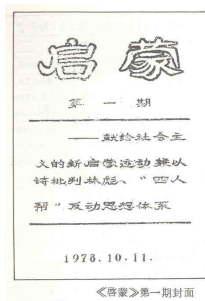 启蒙
第一期
——献给社会主
义的新启蒙运动并以
诗批判林彪、“四人
帮”反动思想体系
1978.10.11.
《启蒙》第一期封面